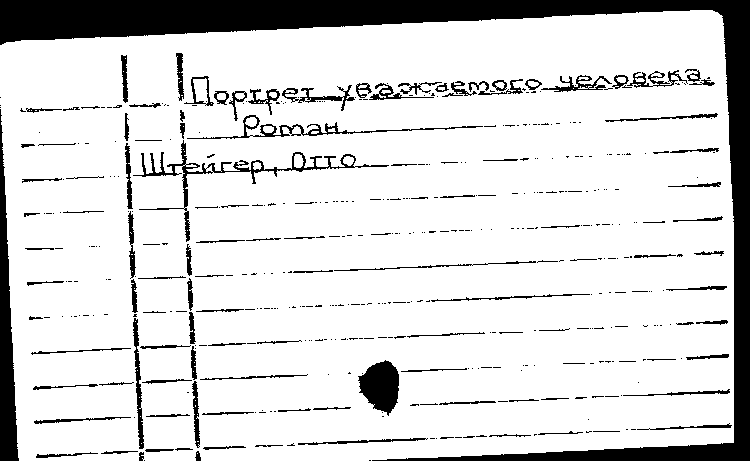 Портрет уважаемого человека.
Роман.
Штейгер, Отто.